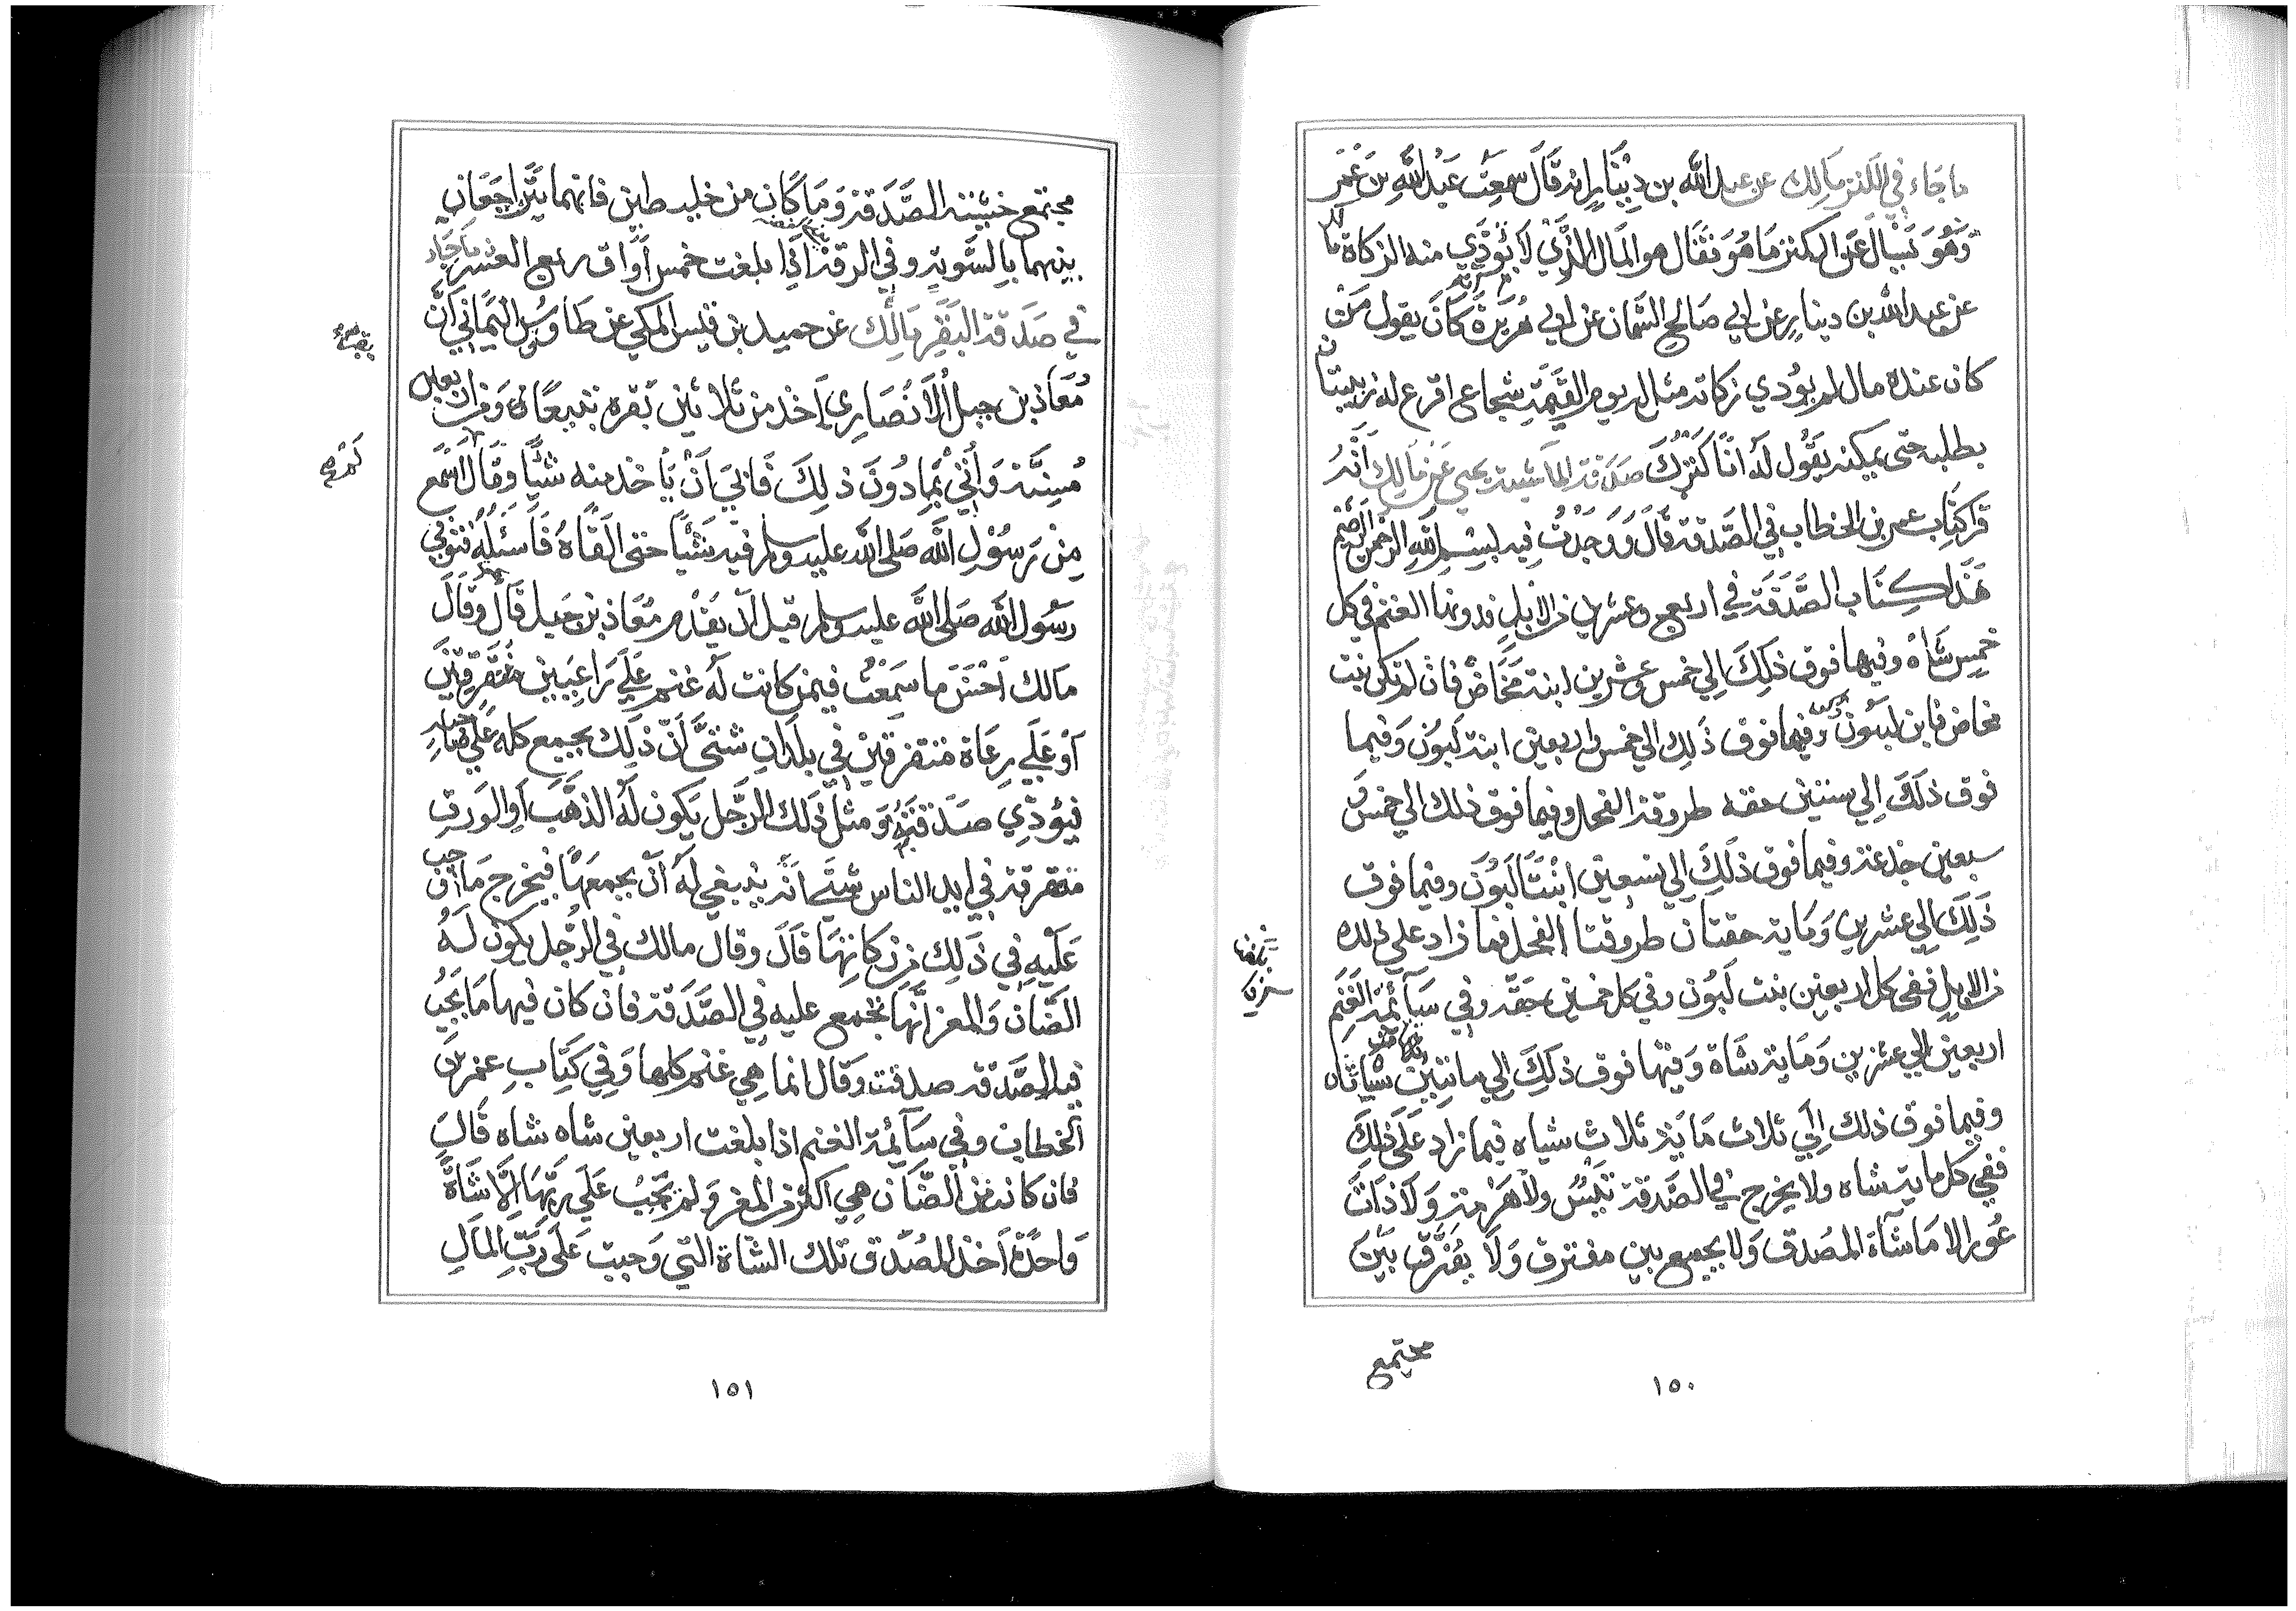 ما جاء في الكنز مالك عن عبد الله بن دينار انه قال سمعت عبد الله بن عمر
وهو يسال عن الكنز ما هو فقال هو المال الذي لا يودي منه الزكاة مالك
عن عبد الله بن دينار عن ابي صالح السمان عن ابي هريرة انه كان يقول من
كان عنده مال لم يودي زكاته مثل له يوم القيمة شجاع اقرع له زبيبتان
يطلبه حتى يمكنه يقول له انا كنزك صدقة الماشية يحيى عن مالك انه
قرا كتاب عمر بن الخطاب في الصدقة قال ووجدت فيه بسم الله الرحمن الرحيم
هذا كتاب الصدقة في اربع وعشرين من الابل فدونها الغنم في كل
خمس شاة وفيما فوق ذلك الي خمس وعشرين ابنة مخاض فان لم تكن بنت
مخاض فابن لبون ذكر وفيما فوق ذلك الي خمس واربعين ابنة لبون وفيما
فوق ذلك الي ستين حقه طروقة الفحل وفيما فوق ذلك الي خمس و
سبعين جذعة وفيما فوق ذلك الي تسعين ابنتا لبون وفيما فوق
ذلك الي عشرين وماية حقتان طروقتا الفحل فما زاد علي ذلك
من الابل ففي كل اربعين بنت لبون وفي كل خمسين حقه وفي سائمة الغنم
اربعين الي عشرين وماية شاة وفيما فوق ذلك الي مائتين شاتان
وفيما فوق ذلك الي ثلاث ماية ثلاث شياه فيما زاد على ذلك
ففي كل ماية شاه ولا يخرج في الصدقة تيس ولا هرمة ولا ذات
عور الا ما شاء المصدق ولا يجمع بين مفترق ولا يفرق بين
مجتمع
١٥٠
مجتمع خشية الصدقة وما كان من خليطين فانهما يتراجعان
بينهما بالسوية وفي الرقة اذا بلغت خمس اواق ربع العشر ما جاء
في صدقة البقر مالك عن حميد بن قيس المكي عن طاوس اليماني ان
معاذ بن جبل الانصاري اخذ من ثلاثين بقره تبيعا ومن اربعين
مسنة واتي بما دون ذلك فابي ان ياخذ منه شيا وقال لم اسمع
من رسول الله صلى الله عليه وسلم فيه شيا حتى القاه فاسئله فتوفي
رسول الله صلى الله عليه وسلم قبل ان يقدم معاذ بن جبل قال وقال
مالك احسن ما سمعت فيمن كانت له غنم علي راعيين متفرقين
او علي رعاة متفرقين في بلدان شتى ان ذلك يجمع كله علي صاحبه
فيؤدي صدقته ومثل ذلك الرجل يكون له الذهب او الورق
متفرقة في ايد الناس شتى انه ينبغي له ان يجمعها فيخرج ما وجب
عليه في ذلك من زكاتها قال وقال مالك في الرجل يكون له
الضان والمعز انها تجمع عليه في الصدقة فان كان فيها ما يجب
فيه الصدقه صدقت وقال انما هي غنم كلها وفي كتاب عمر بن
الخطاب وفي سائمة الغنم اذا بلغت اربعين شاه شاه قال
فان كانت الضان هي اكثر من المعز ولم يجب علي ربها الا شاة
واحدة اخذ المصدق تلك الشاة التي وجبت على رب المال
١٥١